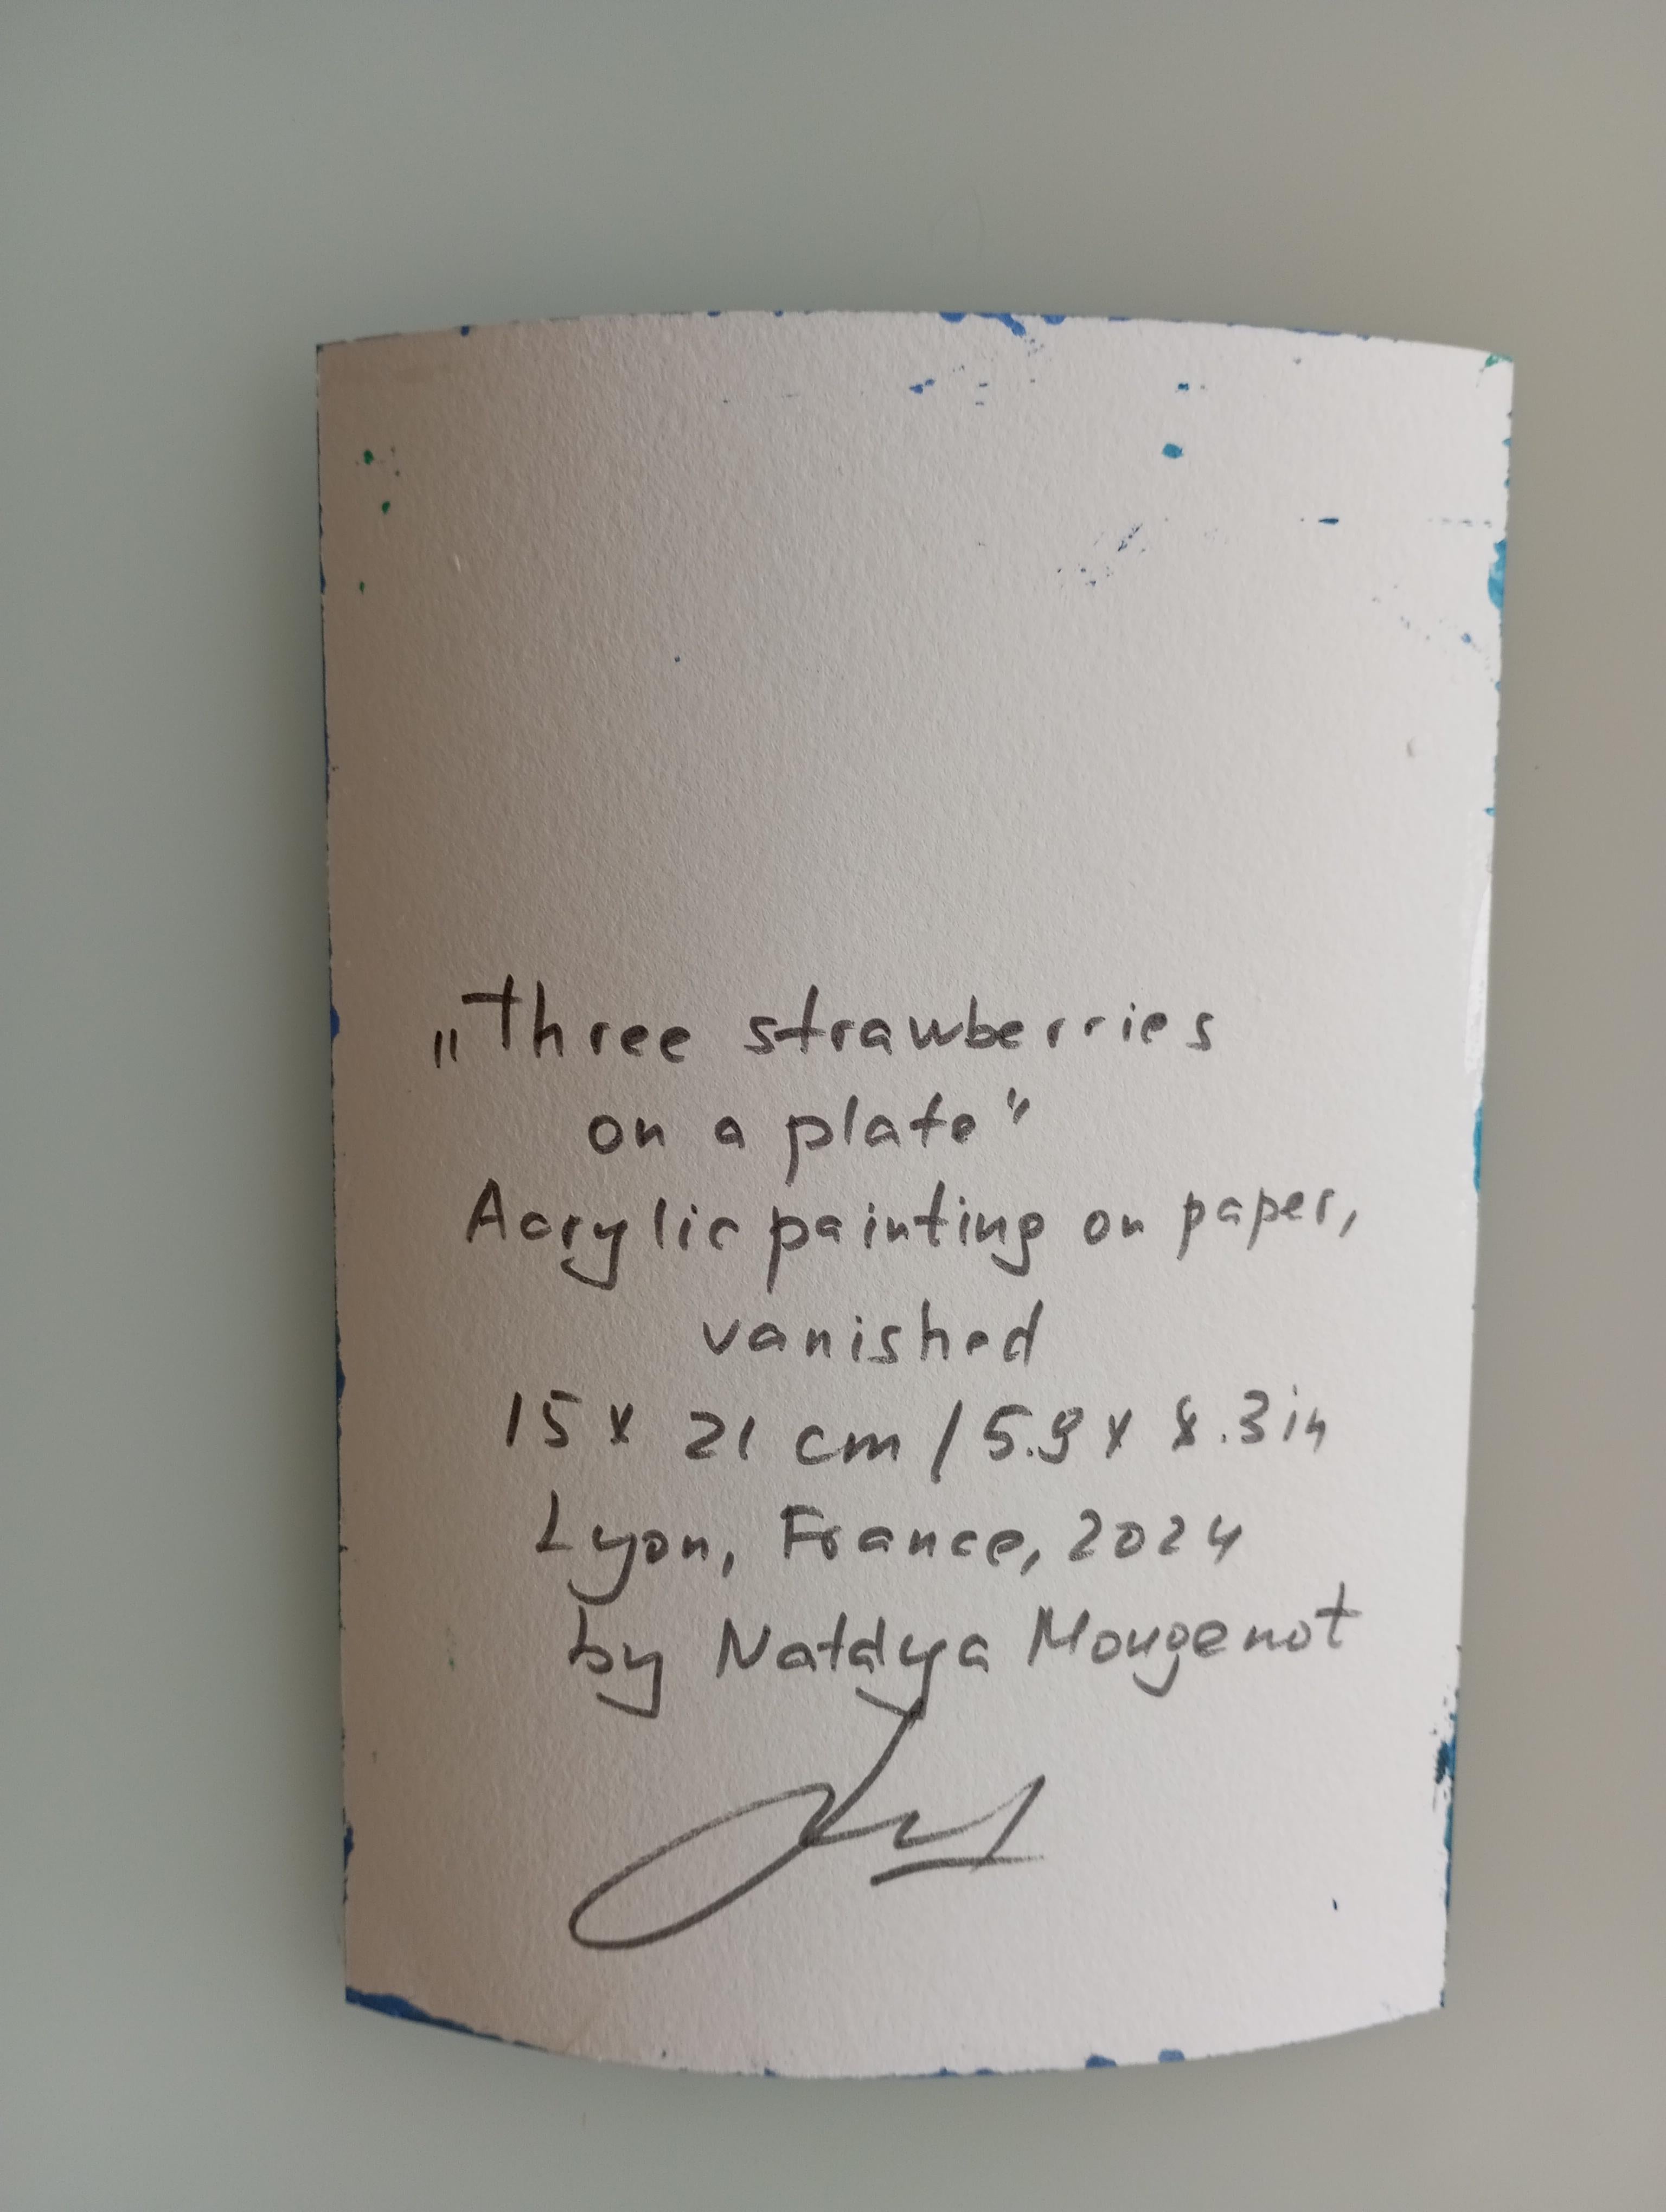 „Three strawberries
on a plate"
Acrylic painting on paper,
vanished
15 x 21 cm / 5.9 x 8.3 in
Lyon, France, 2024
by Natalya Mougenot